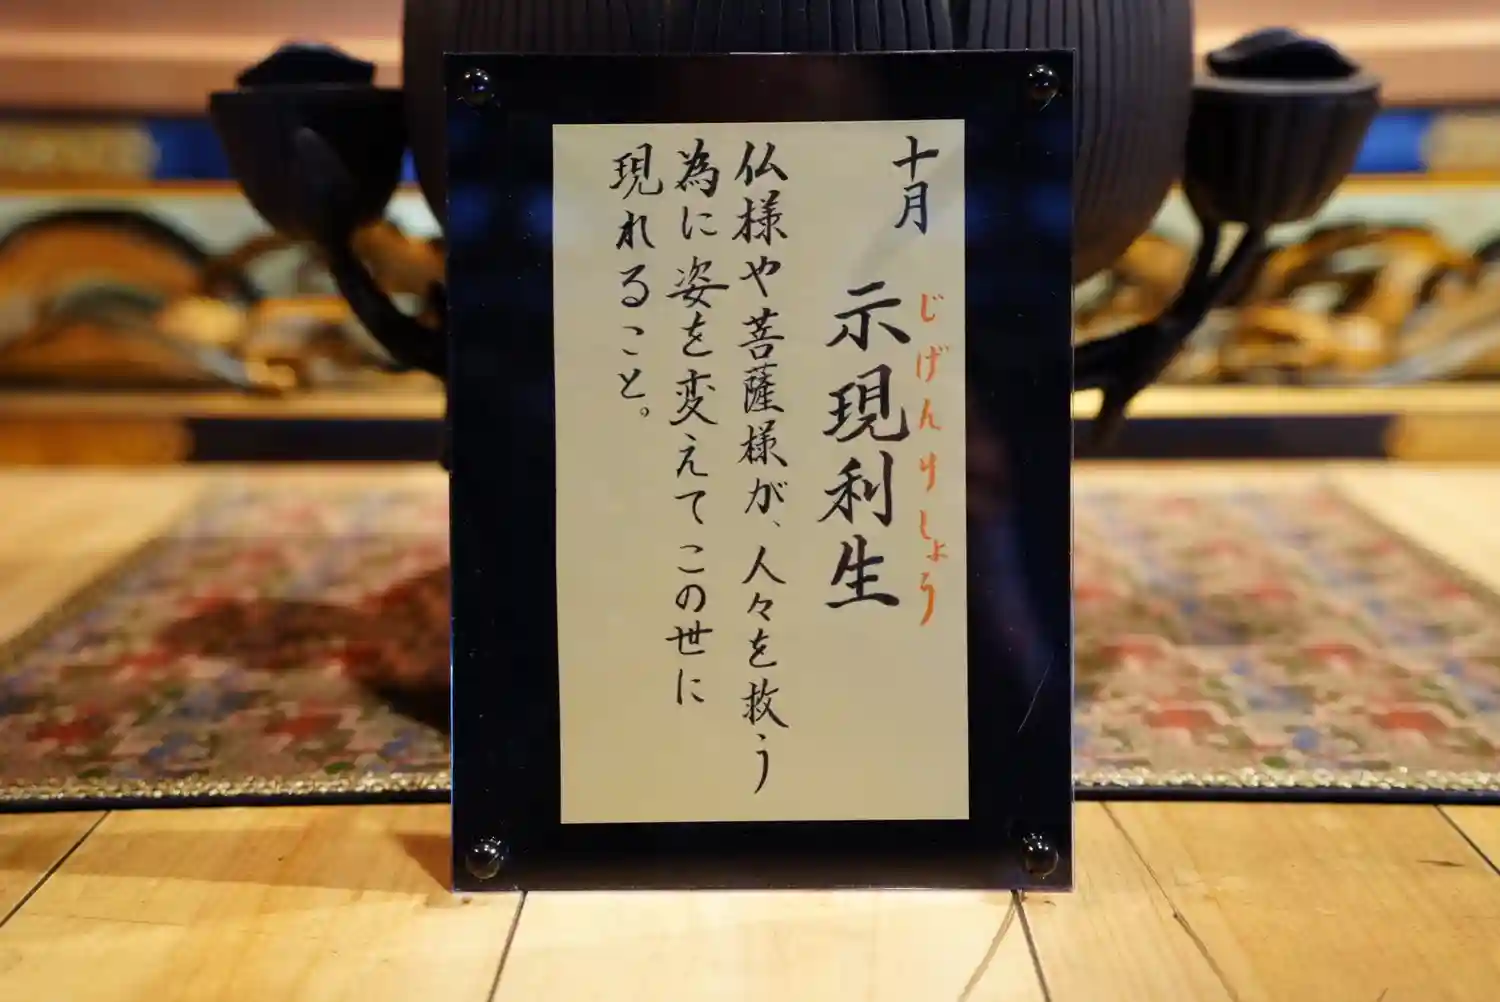 十月
じげんりしょう
示現利生
仏様や菩薩様が、人々を救う
為に姿を変えてこの世に
現れること。